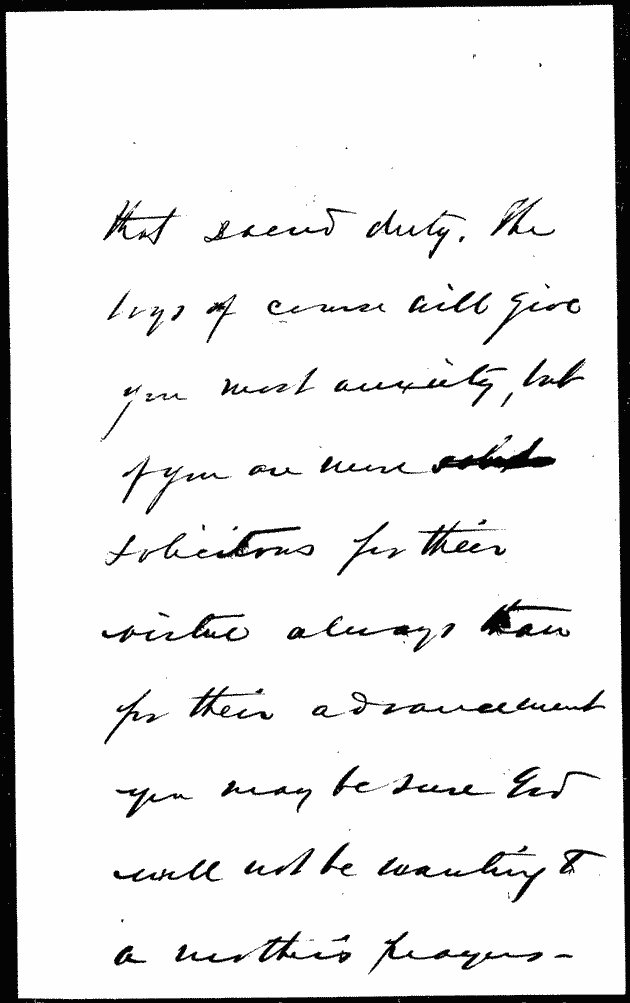 that sacred duty. The
boys of course will give
you most anxiety, but
if you are more
solicitous for their
virtue always than
for their advancement
you may be sure God
will not be wanting to
a mother's prayers -